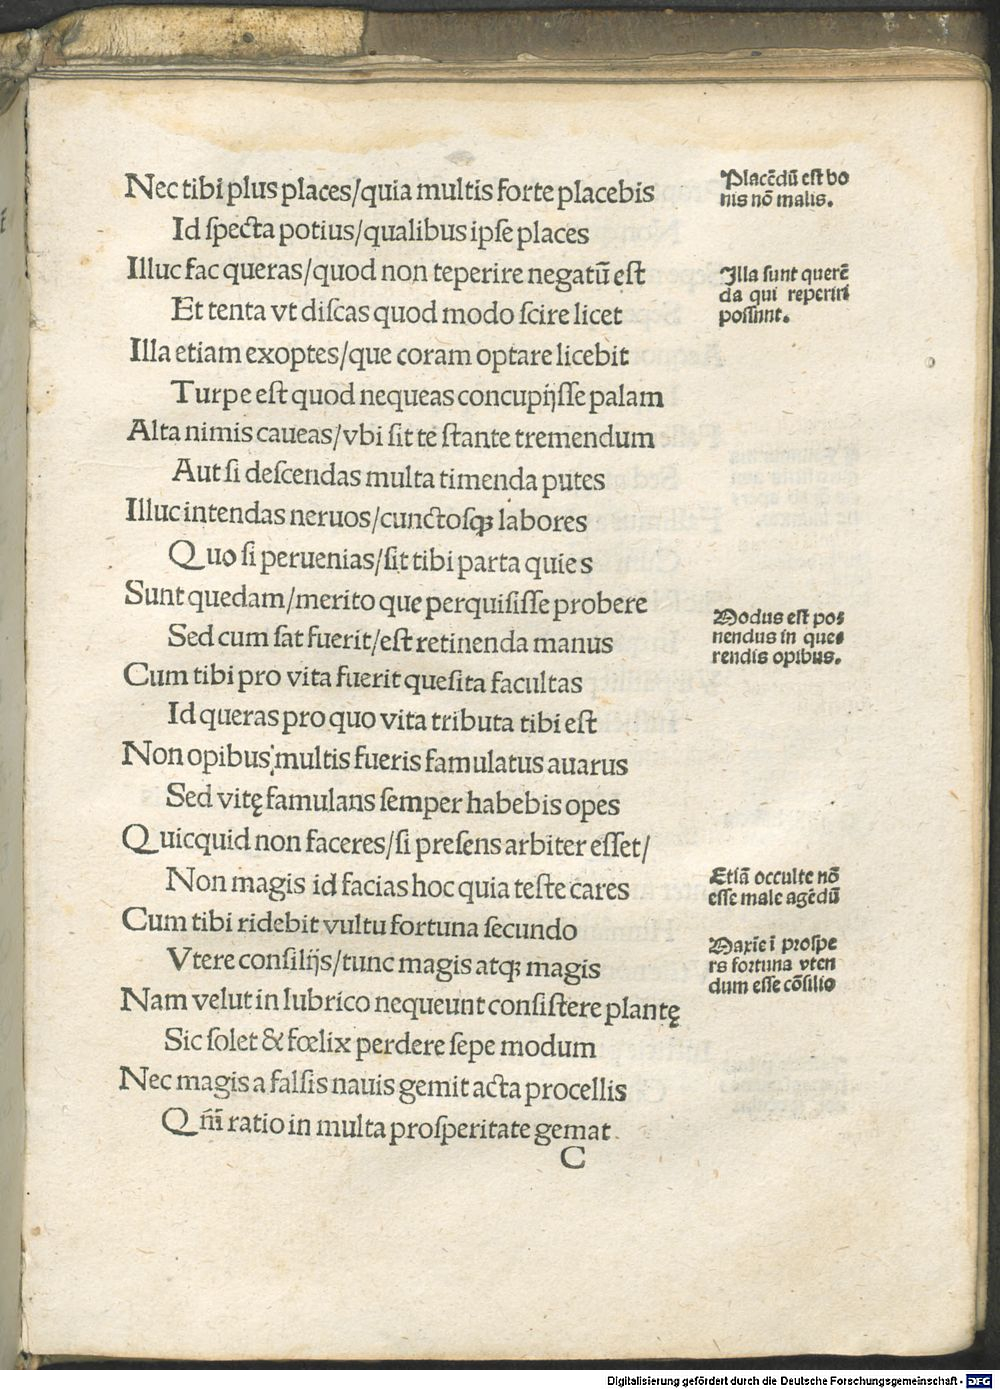 Nec tibi plus places/quia multis forte placebis
Id ſpecta potius/qualibus ipſe places
Illuc fac queras/quod non teperire negatũ eſt
Et tenta vt diſcas quod modo ſcire licet
Illa etiam exoptes/que coram optare licebit
Turpe eſt quod nequeas concupijſſe palam
Alta nimis caueas/vbi ſit te ſtante tremendum
Aut ſi deſcendas multa timenda putes
Illuc intendas neruos/cunctoſqꝫ labores
Quo ſi peruenias/ſit tibi parta quies
Sunt quedam/merito que perquiſiſſe probere
Sed cum ſat fuerit/eſt retinenda manus
Cum tibi pro vita fuerit queſita facultas
Id queras pro quo vita tributa tibi eſt
Non opibus multis fueris famulatus auarus
Sed vitę famulans ſemper habebis opes
Quicquid non faceres/ſi preſens arbiter eſſet/
Non magis id facias hoc quia teſte cares
Cum tibi ridebit vultu fortuna ſecundo
Vtere conſilijs/tunc magis atqꝫ magis
Nam velut in lubrico nequeunt conſiſtere plantę
Sic ſolet & fœlix perdere ſepe modum
Nec magis a falſis nauis gemit acta procellis
Qm̃ ratio in multa proſperitate gemat
C
Placẽdũ eſt bo
nis nõ malis.
Illa ſunt querẽ
da qui reperiri
poſſunt.
Modus eſt po⸗
nendus in que⸗
rendis opibus.
Etiã occulte nõ
eſſe male agẽdũ
Maxĩe ĩ proſpe
ra fortuna vten
dum eſſe cõſilio
Digitalisierung gefördert durch die Deutsche Forschungsgemeinschaft - DFG